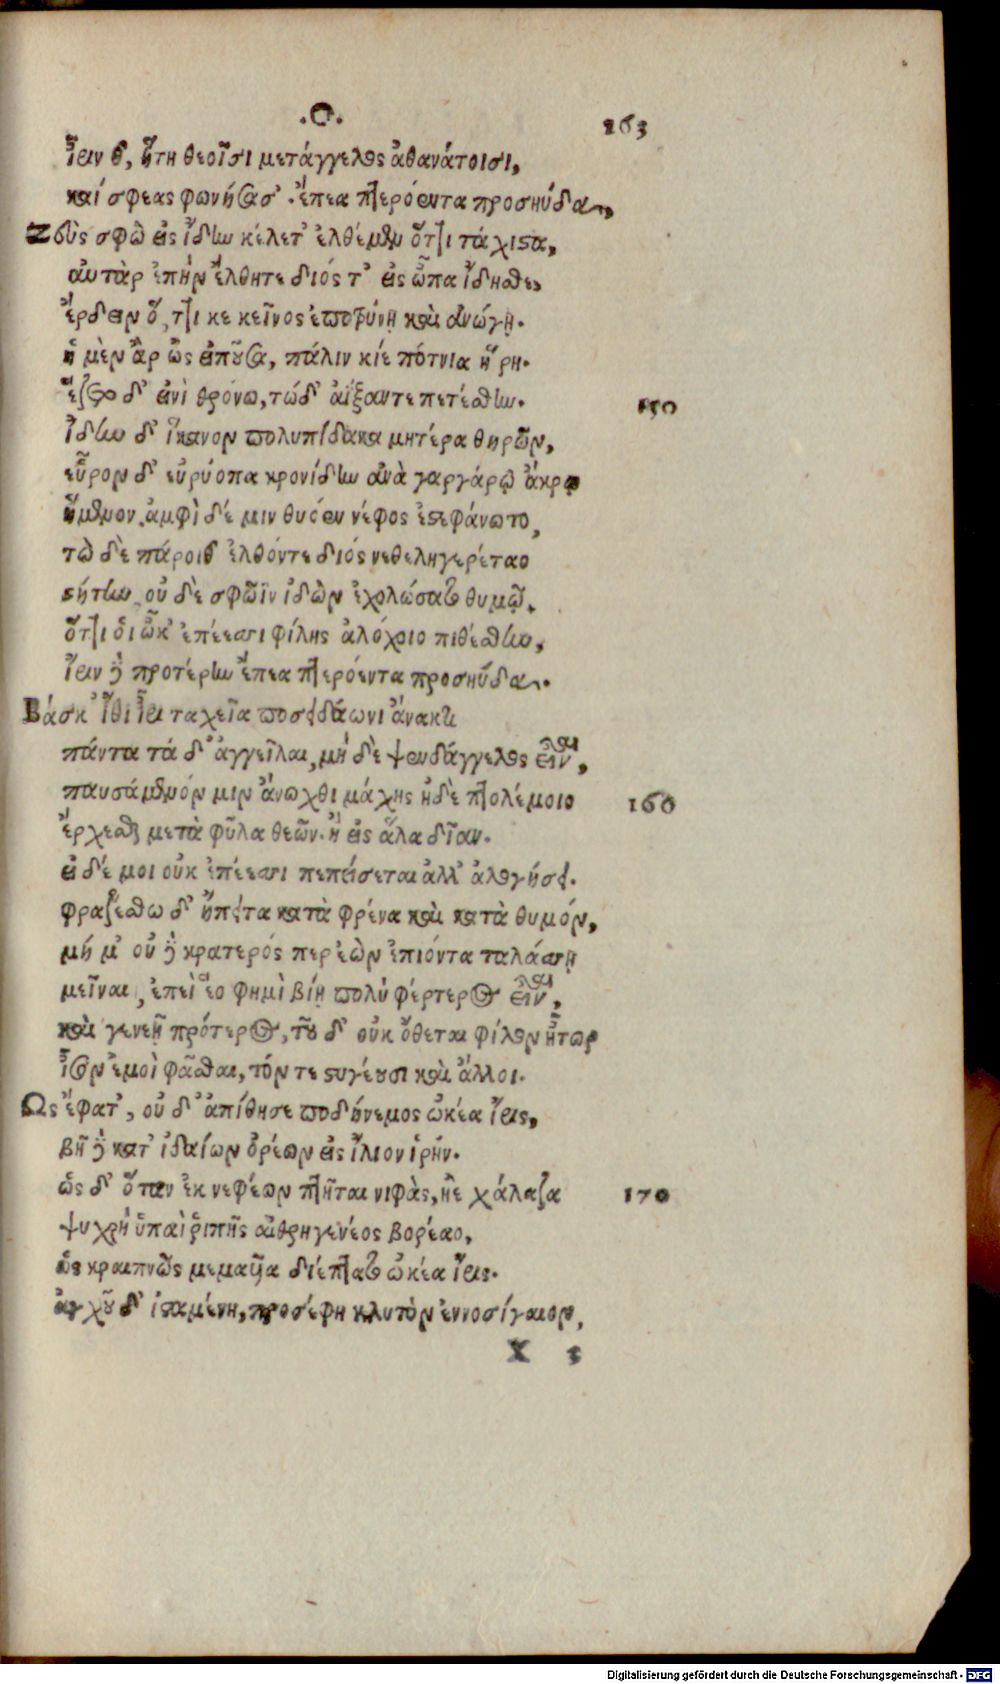 .Ο. 263
ἶριν θ', ἥτη θεοῖσι μετάγγελος ἀθανάτοισι,
καί σφεας φωνήσασ' ἔπεα πτερόεντα προσηύδα.
Ζεὺς σφὼ εἰς ἴδην κέλετ' ἐλθέμεν ὅττι τάχιστα,
αὐτὰρ ἐπὴν ἔλθητε διός τ' εἰς ὦπα ἴδησθε,
ἔρδειν ὅ, ττι κε κεῖνος ἐποτρύνῃ καὶ ἀνώγῃ.
ἡ μὲν ἂρ ὣς εἰποῦσα, πάλιν κίε πότνια ἥρη.
ἕζετο δ' ἐνὶ θρόνῳ, τώδ' ἀΐξαντε πετέσθην. 150
ἴδην δ' ἵκανον πολυπίδακα μητέρα θηρῶν,
εὗρον δ' εὐρύοπα κρονίδην ἀνὰ γαργάρῳ ἄκρῳ
ἥμενον. ἀμφὶ δέ μιν θυόεν νέφος ἐστεφάνωτο,
τὼ δὲ πάροιθ' ἐλθόντε διός νεθεληγερέταο
στήτην, οὐ δὲ σφῶϊν ἰδὼν ἐχολώσατο θυμῷ.
ὅττι οἱ ὦκ' ἐπέεσσι φίλης ἀλόχοιο πιθέσθην,
ἶριν δὲ προτέρην ἔπεα πτερόεντα προσηύδα.
Βάσκ' ἴθι ἶρι ταχεῖα ποσειδάωνι ἄνακτι
πάντα τά δ' ἀγγεῖλαι, μὴ δὲ ψευδάγγελος εἶναι,
παυσάμενόν μιν ἄνωχθι μάχης ἠδὲ πτολέμοιο 160
ἔρχεσθαι μετὰ φῦλα θεῶν. ἢ εἰς ἅλα δῖαν.
εἰ δέ μοι οὐκ ἐπέεσσι πεπείσεται ἀλλ' ἀλογήσει.
φραζέσθω δ' ἤπειτα κατὰ φρένα καὶ κατὰ θυμόν,
μή μ' οὐ δὲ κρατερός περ ἐὼν ἐπιόντα ταλάσσῃ
μεῖναι, ἐπεὶ ἕο φημὶ βίῃ πολὺ φέρτερος εἶναι,
καὶ γενεῇ πρότερος, τοῦ δ' οὐκ ὄθεται φίλον ἦτορ
ἶσον ἐμοὶ φᾶσθαι, τόν τε στυγέουσι καὶ ἄλλοι.
Ως ἔφατ', οὐ δ' ἀπίθησε ποδήνεμος ὠκέα ἶρις,
βῆ δὲ κατ' ἰδαίων ὀρέων εἰς ἴλιον ἱρήν.
ὡς δ' ὅταν ἐκ νεφέων πτῆται νιφὰς, ἠὲ χάλαζα 170
ψυχρὴ ὑπαὶ ῥιπῆς αἰθρηγενέος βορέαο,
ὣς κραιπνῶς μεμαυῖα διέπτατο ὠκέα ἶρις.
ἀγχοῦ δ' ἱσταμένη, προσέφη κλυτὸν ἐννοσίγαιον,
X 3
Digitalisierung gefördert durch die Deutsche Forschungsgemeinschaft - DFG